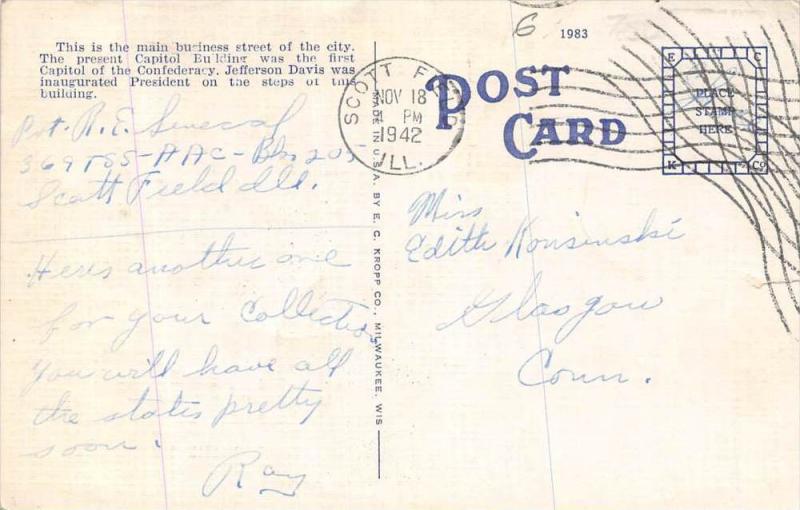 This is the main business street of the city.
The present Capitol Building was the first
Capitol of the Confederacy. Jefferson Davis was
inaugurated President on the steps of this
building.
Pvt. R. E. Senecal
369 TSS-AAC-Bks 205
Scott Field Ill.
Heres another one
for your Collection
You will have all
the states pretty
soon.
Ray
MADE IN U.S.A. BY E. C. KROPP CO., MILWAUKEE, WIS
SCOTT FIELD
NOV 18
PM
1942
ILL.
6
1983
POST
CARD
E C
PLACE
STAMP
HERE
K Co
Miss
Edith Konsinski
Glasgow
Conn.